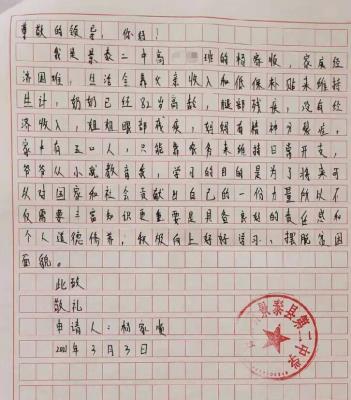 尊敬的领导，你好！
我是景泰二中高 班的杨家顺，家庭经
济困难，生活全靠父亲收入和低保补贴来维持
生计，奶奶已经82岁高龄，腿部残疾，没有经
济收入，姐姐眼部残疾，妈妈有精神方面症，
家中有五口人，只能靠 务来维持日常开支，
爷爷从小就教育我，学习的目的是为了将来可
以对国家和社会贡献出自己的一份力量所以不
仅需要丰富知识更重要是具备良好的责任感和
个人道德修养，积极向上好好学习、摆脱贫困
面貌。
此致
敬礼
申请人：杨家顺
2021年3月3日
景泰县第二中学